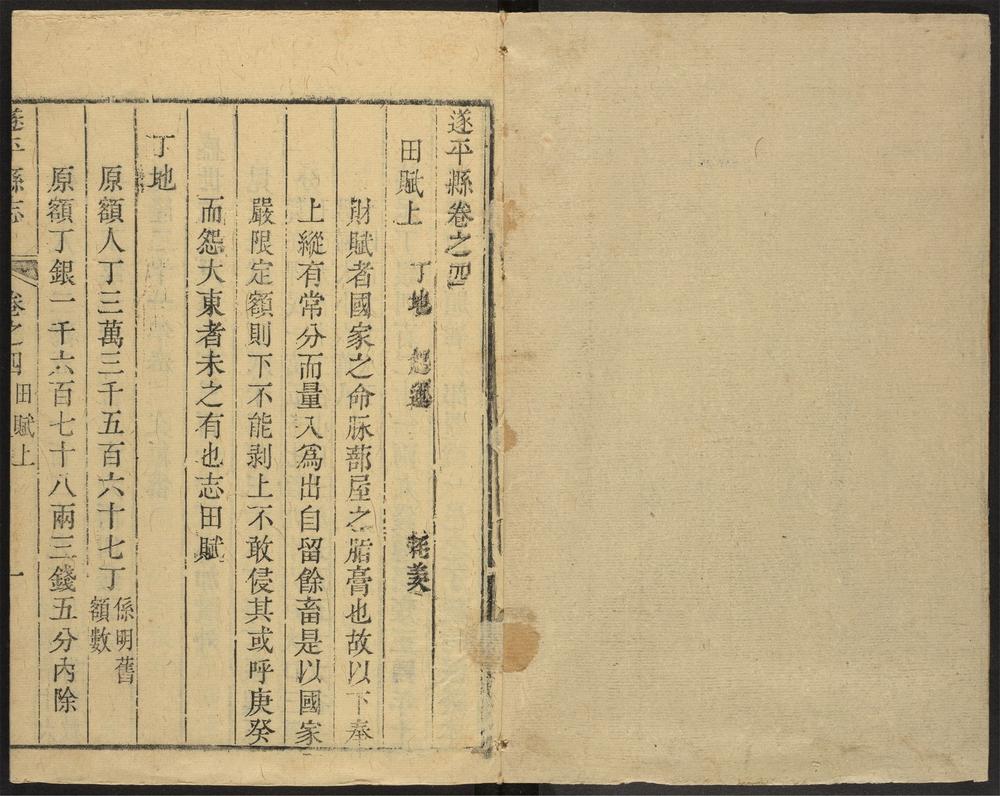 遂平縣卷之四
田賦上 丁地 起運 耗羨
財賦者國家之命脉蔀屋之脂膏也故以下奉
上縱有常分而量入爲出自留餘畜是以國家
嚴限定額則下不能剥上不敢侵其或呼庚癸
而怨大東者未之有也志田賦
丁地
原額人丁三萬三千五百六十七丁係明舊
額數
原額丁銀一千六百七十八兩三錢五分內除
遂平縣志 卷之四 田賦上 一